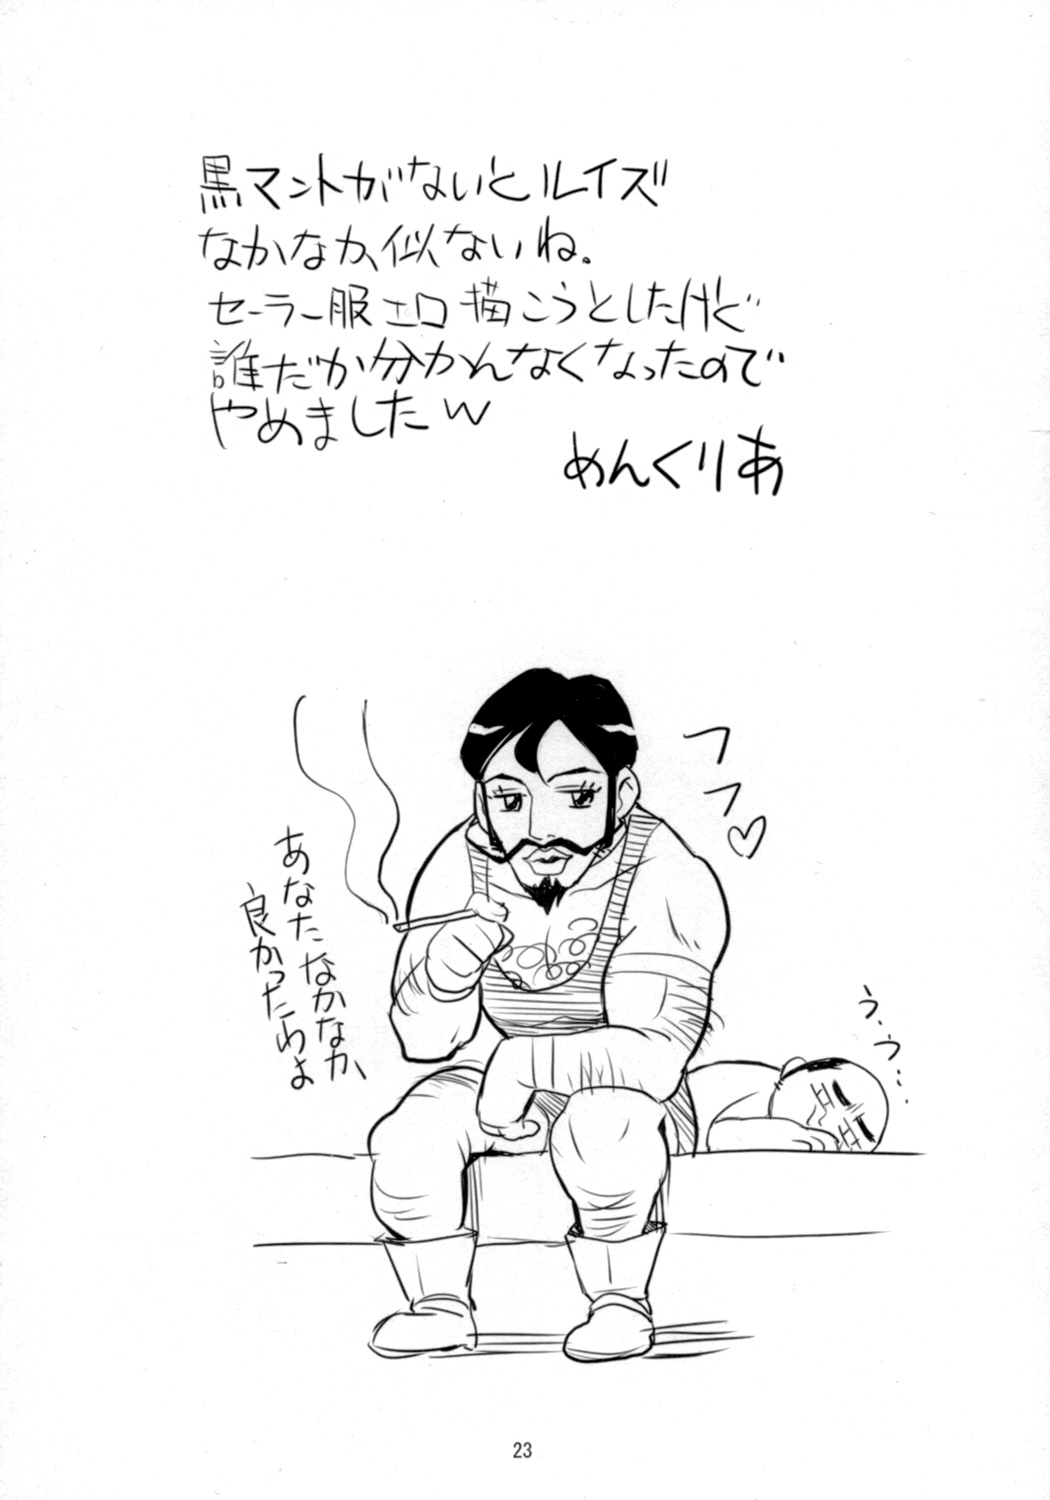 黒マントがないとルイズ
なかなか似ないね。
セーラー服エロ描こうとしたけど
誰だか分かんなくなったので
やめましたw
めんくりあ
フフ♡
あなたなかなか
良かったわよ
う、う…
23